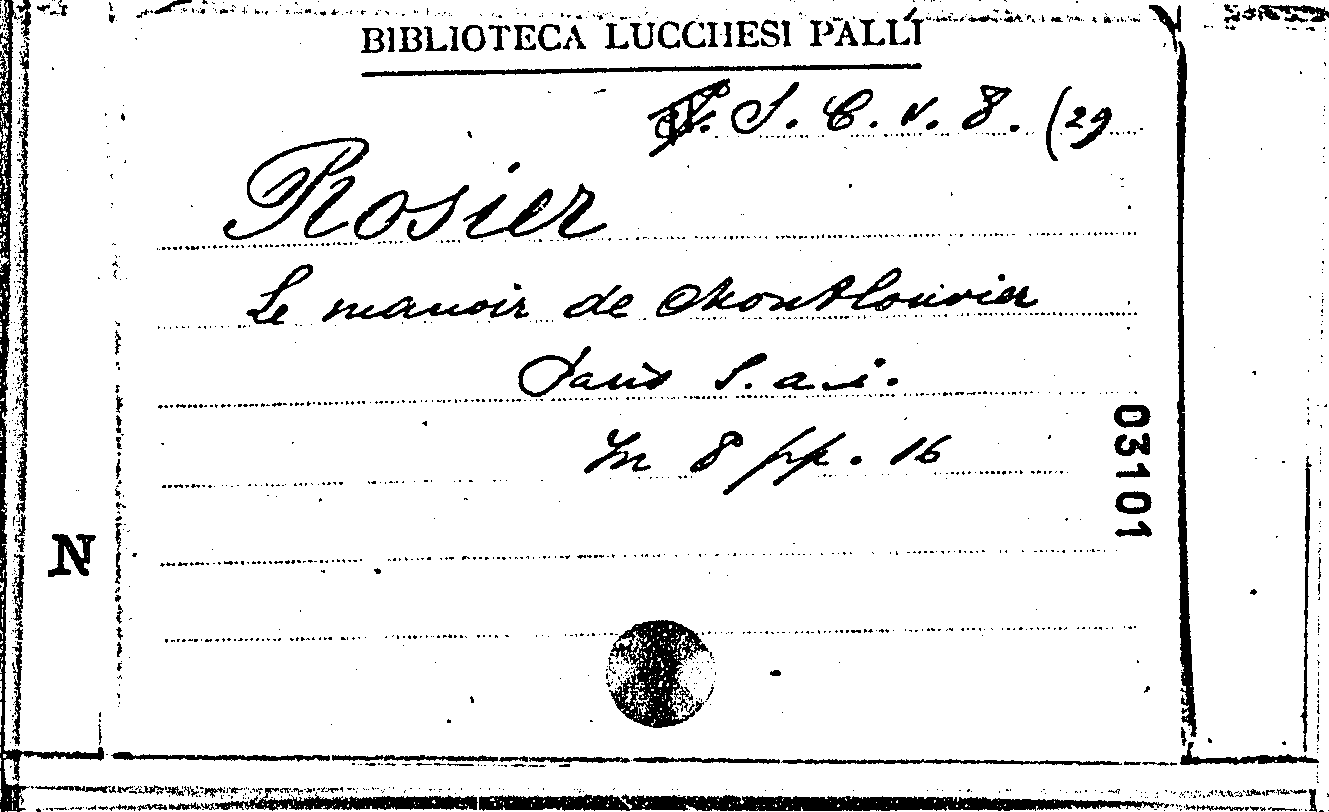 BIBLIOTECA LUCCHESI PALLI
S. C. V. 8. (29
Rosier
Le manoir de Montlouvier
Paris S. a. i.
In 8 pp. 16
03101
N